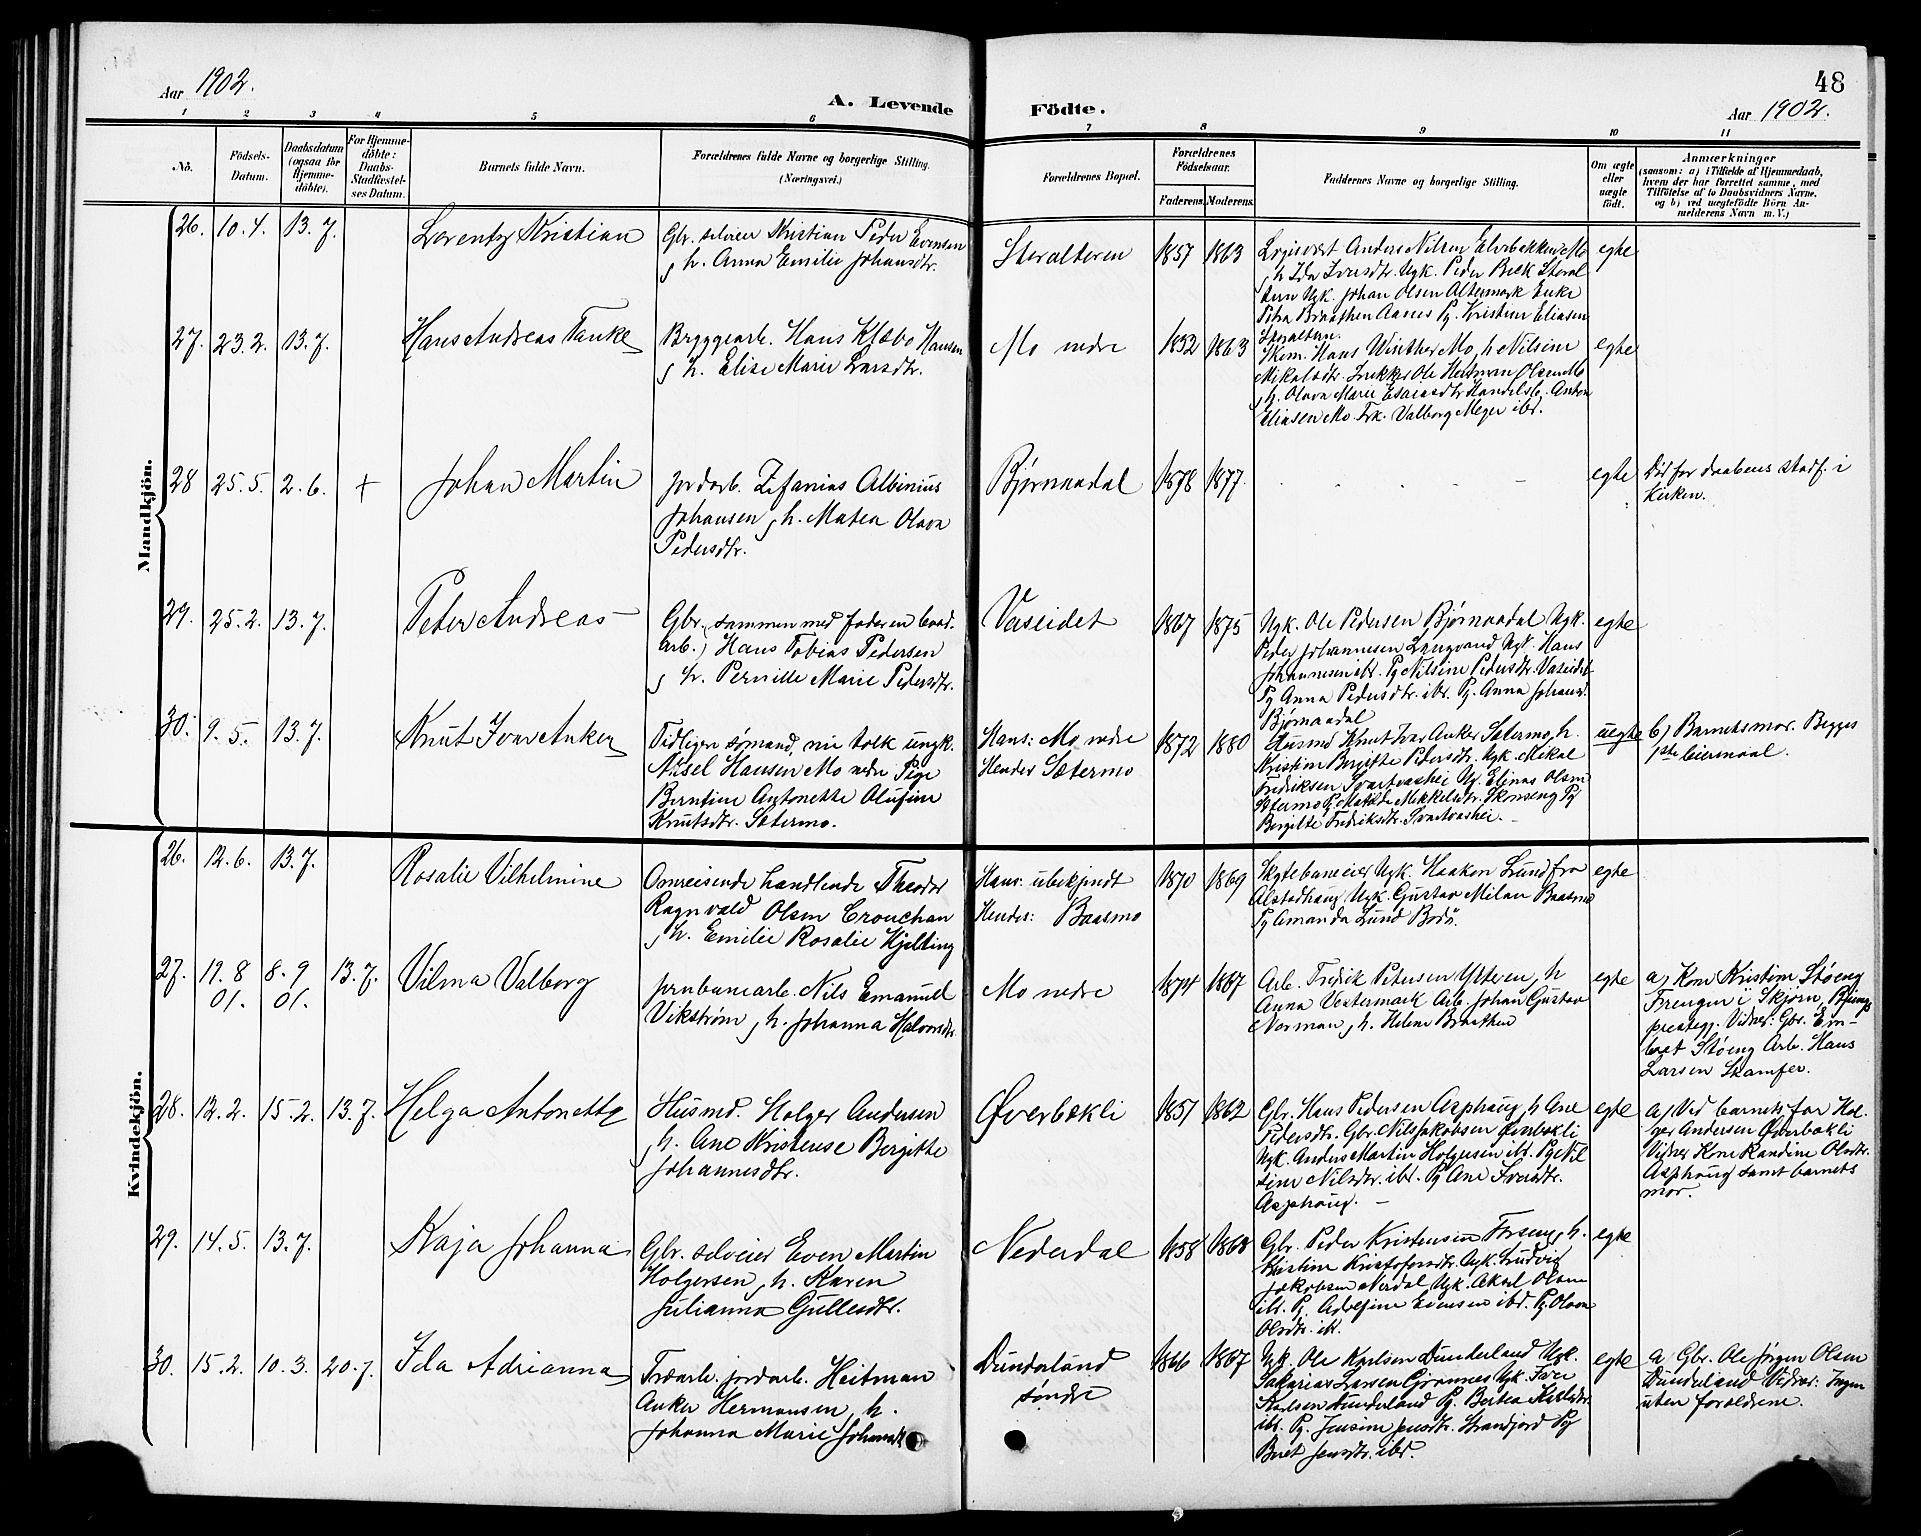 48
Aar 1902.
A. Levende Födte.
Aar 1902.
1 2 3 4 5 6 7 8 9 10 11
No.
Födsels-Datum.
Daabsdatum (ogsaa for Hjemmedöbte).
For Hjemmedöbte: Daabs-Stadfæstelses Datum.
Barnets fulde Navn.
Forældrenes fulde Navne og borgerlige Stilling. (Næringsvei.)
Forældrenes Bopæl.
Forældrenes Födselsaar.
Faderens. Moderens.
Faddernes Navne og borgerlige Stilling.
Om ægte eller uægte födt.
Anmærkninger
(saasom: a) i Tilfælde af Hjemmedaab, hvem der har forrettet samme, med Tilföielse af to Daabsvidners Navne, og b) ved uægtefödte Börn Anmelderens Navn m. V.)
Mandkjön.
26. 10.4. 13.7. Lorentz Kristian
Gbr. selveier Kristian Peder Evensen
, h. Anna Emilie Johansdtr.
Storalteren 1857 1863
Logisvert Anders Nilsen Elvebakken Mo
, h Ida Iversdtr. Ugk. Peder Beck Storal
tern Ugk. Johan Olsen Altermark Enke
Petra Braathen Aanes Pg. Kristine Eliasen
Storaltern.
egte
27. 23.2. 13.7. Hans Andreas Tanke
Bryggearb. Hans Klæbo Hansen
, h. Elise Marie Larsdtr.
Mo nedre 1832 1863
Skom. Hans Winther Mo, h Nilsine
Mikalsdtr. Snekker Ole Herman Olsen Mo
, h. Olava Marie Esaiasdtr Handelsb. Anton
Eliasen Mo Frk. Valborg Meyer ibd.
egte
28 25.5. 2.6. + Johan Martin
Jordarb. Zefanias Albinius
Johansen, h. Matea Olava
Pedersdtr.
Bjørnaadal 1878 1877.
egte
Død før daabens stadf. i
Kirken.
29. 25.2. 13.7. Peter Andreas
Gbr. (sammen med faderen baad.
arb.) Hans Tobias Pedersen
, h. Pernille Marie Pedersdtr.
Vaseidet 1867 1875
Ugk. Ole Pedersen Bjørnaadal Ugk.
Peder Johannesen Langvand Ugk. Hans
Johannesen ibr. Pg Nilsine Pedersdtr. Vaseidet
Pg Anna Pedersdtr. ibr. Pg. Anna Johansd.
Bjørnaadal
egte
30. 9.5. 13.7. Knut Ivar Anker
Tidligere sømand, nu tolk ungk.
Aksel Hansen Mo nedre Pige
Berntine Antonette Olufine
Knutsdtr. Sætermo.
Hans: Mo nedre
Hendes Sætermo
1872 1880
Husmd Knut Ivar Anker Sætermo, h.
Kristine Birgitte Pedersdtr. Ugk. Mikal
Fredriksen Svartvashei Ug. Elinas Olsen
Sætermo P. Matilde Mikkelsdtr. Skonseng Pg
Birgitte Fredriksdtr. Svartvashei.
uegte
b) Barnets mor. Begges
1ste leiermaal.
Kvindekjön.
26. 12.6. 13.7. Rosalie Vilhelmine
Omreisende handlende Theodor
Ragnvald Olsen Crouchan
, h. Emilie Rosalie Hjelting
Hans: ubekjendt
Hendes: Baasmo
1870 1869
Skytebaneeier Ugk. Haakon Lund fra
Alstadhaug Ugk. Gustav Milan Baasmo
Pg Amanda Lund Bodø.
egte
27. 19.8 01. 8.9 01. 13.7. Vilma Valborg
Jernbanearb. Nils Emanuel
Vikstrøm, h. Johanna Halvorsdtr.
Mo nedre 1874 1867
Arb. Fredrik Petersen Ytteren, h
Anna Vestermark Arb. Johan Gustav
Norman, h. Helene Braathen
egte
a) Kone Kristine Støeng
Frengen i Skjørn,
prestegj: Vidner: Gbr. Em-
bret Støeng Arb. Hans
Larsen Skamfer.
28. 12.2. 15.2. 13.7. Helga Antonette
Husmd. Holger Andersen
, h. Ane Kristense Bergitte
Johannesdtr.
Øverbækli 1857 1862
Gbr. Hans Pedersen Asphaug, h Ane
Pedersdtr. Gbr. Nils Jakobsen Øverbækli
Ugk. Anders Martin Holgersen ibr. Pg Nil
sine Nilsdtr. ibr. Pg Ane Iversdtr.
Asphaug.
egte
a) Ved barnets far Hol-
ger Andersen Øverbækli
Vidner Kone Randine Olsdtr.
Asphaug samt barnets
mor.
29. 14.5. 13.7. Kaja Johanna
Gbr. selveier Even Martin
Holgersen, h. Karen
Julianna Gullesdtr.
Nederdal 1858 1868
Gbr. Peder Kristensen Forseng, h.
Kristine Kristofersdtr. Ugk. Ludvig
Jakobsen Nerdal Ugk. Aksel Olsen
ibr. Pg. Adolfine Evensen ibd. Pg Olava
Olsdtr. ibr.
egte
30. 15.2. 10.3. 20.7. Ida Adrianna
Træarb. jordarb. Heitman
Anker Hermansen, h.
Johanna Marie Johansdtr
Dunderland
søndre
1866 1867
Ugk. Ole Karlsen Dunderland Ugk.
Sakarias Larsen Grønnes Ugk. Iver
Karlsen Dunderland Pg. Berlea Karlsdtr.
ibr. Pg. Jensine Jensdtr. Strandjord Pg
Beret Jensdtr. ibd.
egte
a) Gbr. Ole Jørgen Olsen
Dunderland Vidner: Ingen
uten forældrene.